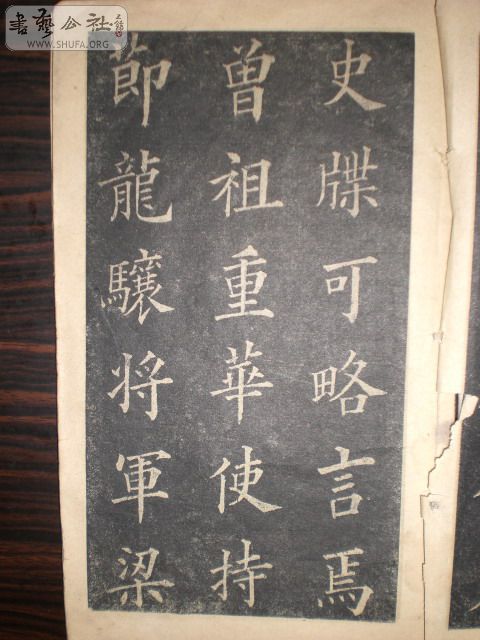 史牒可略言焉
曾祖重華使持
節龍驤将軍梁
書藝公社
WWW.SHUFA.ORG